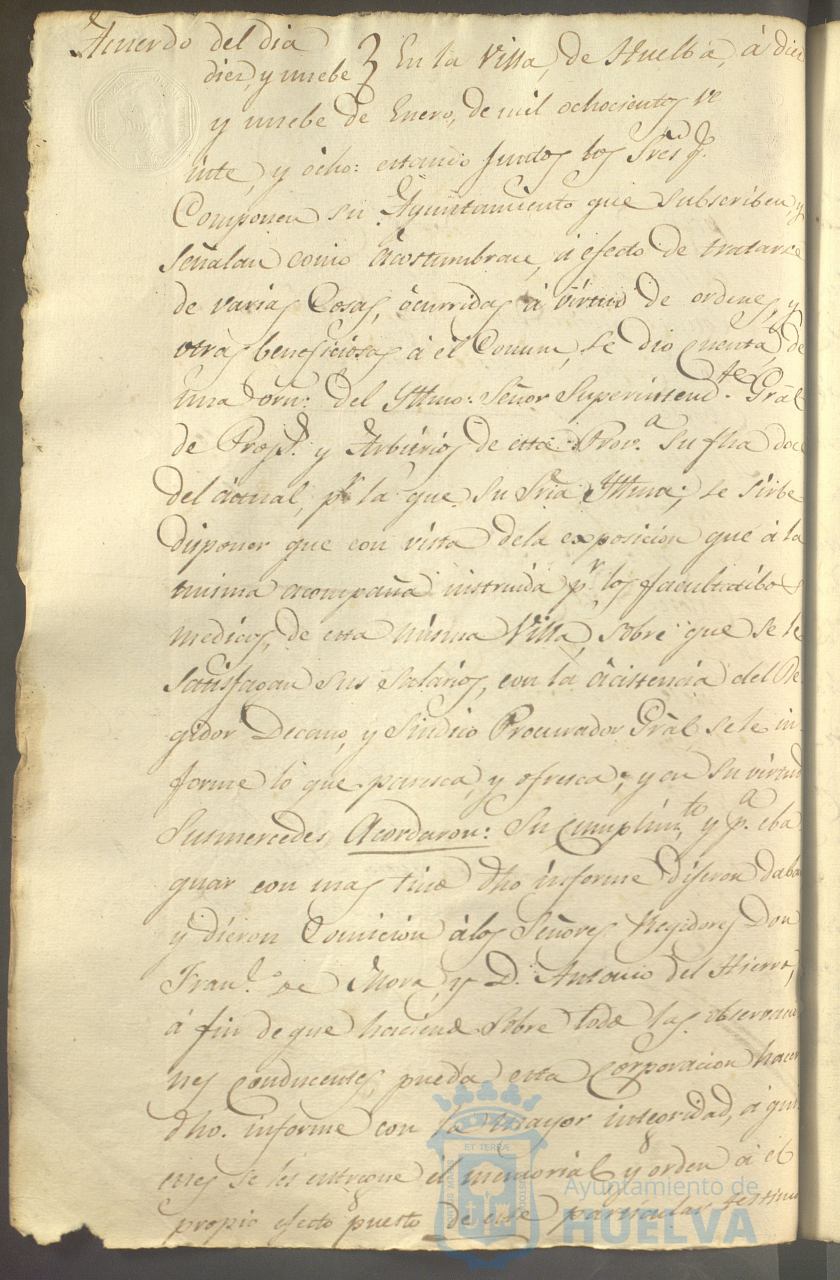 Acuerdo del dia
diez, y nuebe } En la Villa, de Huelba, á diez
y nuebe de Enero, de mil ochocientos ve
inte, y ócho: estando Juntos los Sres q.e
Componen su Ayuntamiento que subscriben y
señalan como Acostumbran, á efecto de tratarse
de varias Cosas, ócurridas á virtud de ordenes, y
otras beneficiosas á el Comun, se dio cuenta de
una orn. del Yttmo: Señor Superintend.te Grâl
de Prop.s y Arbitrios de esta Prov.a su fha doce
del áctual, p.r la que su Sria Yttma; se sirbe
disponer que con vista dela exposicion que á la
misma acompaña instruida p.r los facultatibos
medicos, de esta misma Villa, sobre que se le
satisfagan sus salarios, con la ácistencia del Re
gidor Decano, y Sindico Procurador Grâl, se le in
forme lo que paresca, y ofresca; y en su virtud
Susmercedes Acordaron: Su Cumplim.to y p.a eba
guar con mas tino dho informe dijeron daba
y dieron Comicion álos Señores Regidores Don
Fran.co de Mora, y D. Antonio del Hierro,
á fin de que haciendo sobre todo las observacio
nes conducentes, pueda esta Corporacion hacer
dho. informe con la mayor integridad, á qui
enes se les entregue el memorial y orden á el
propio efecto puesto de este particular testimo
ET TERRÆ
Ayuntamiento de
HUELVA